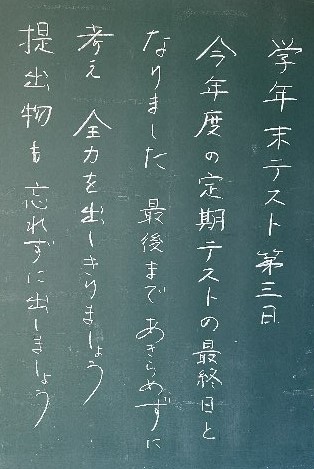 学年末テスト第三日
今年度の定期テストの最終日と
なりました 最後まであきらめずに
考え 全力を出しきりましょう
提出物も 忘れずに出しましょう